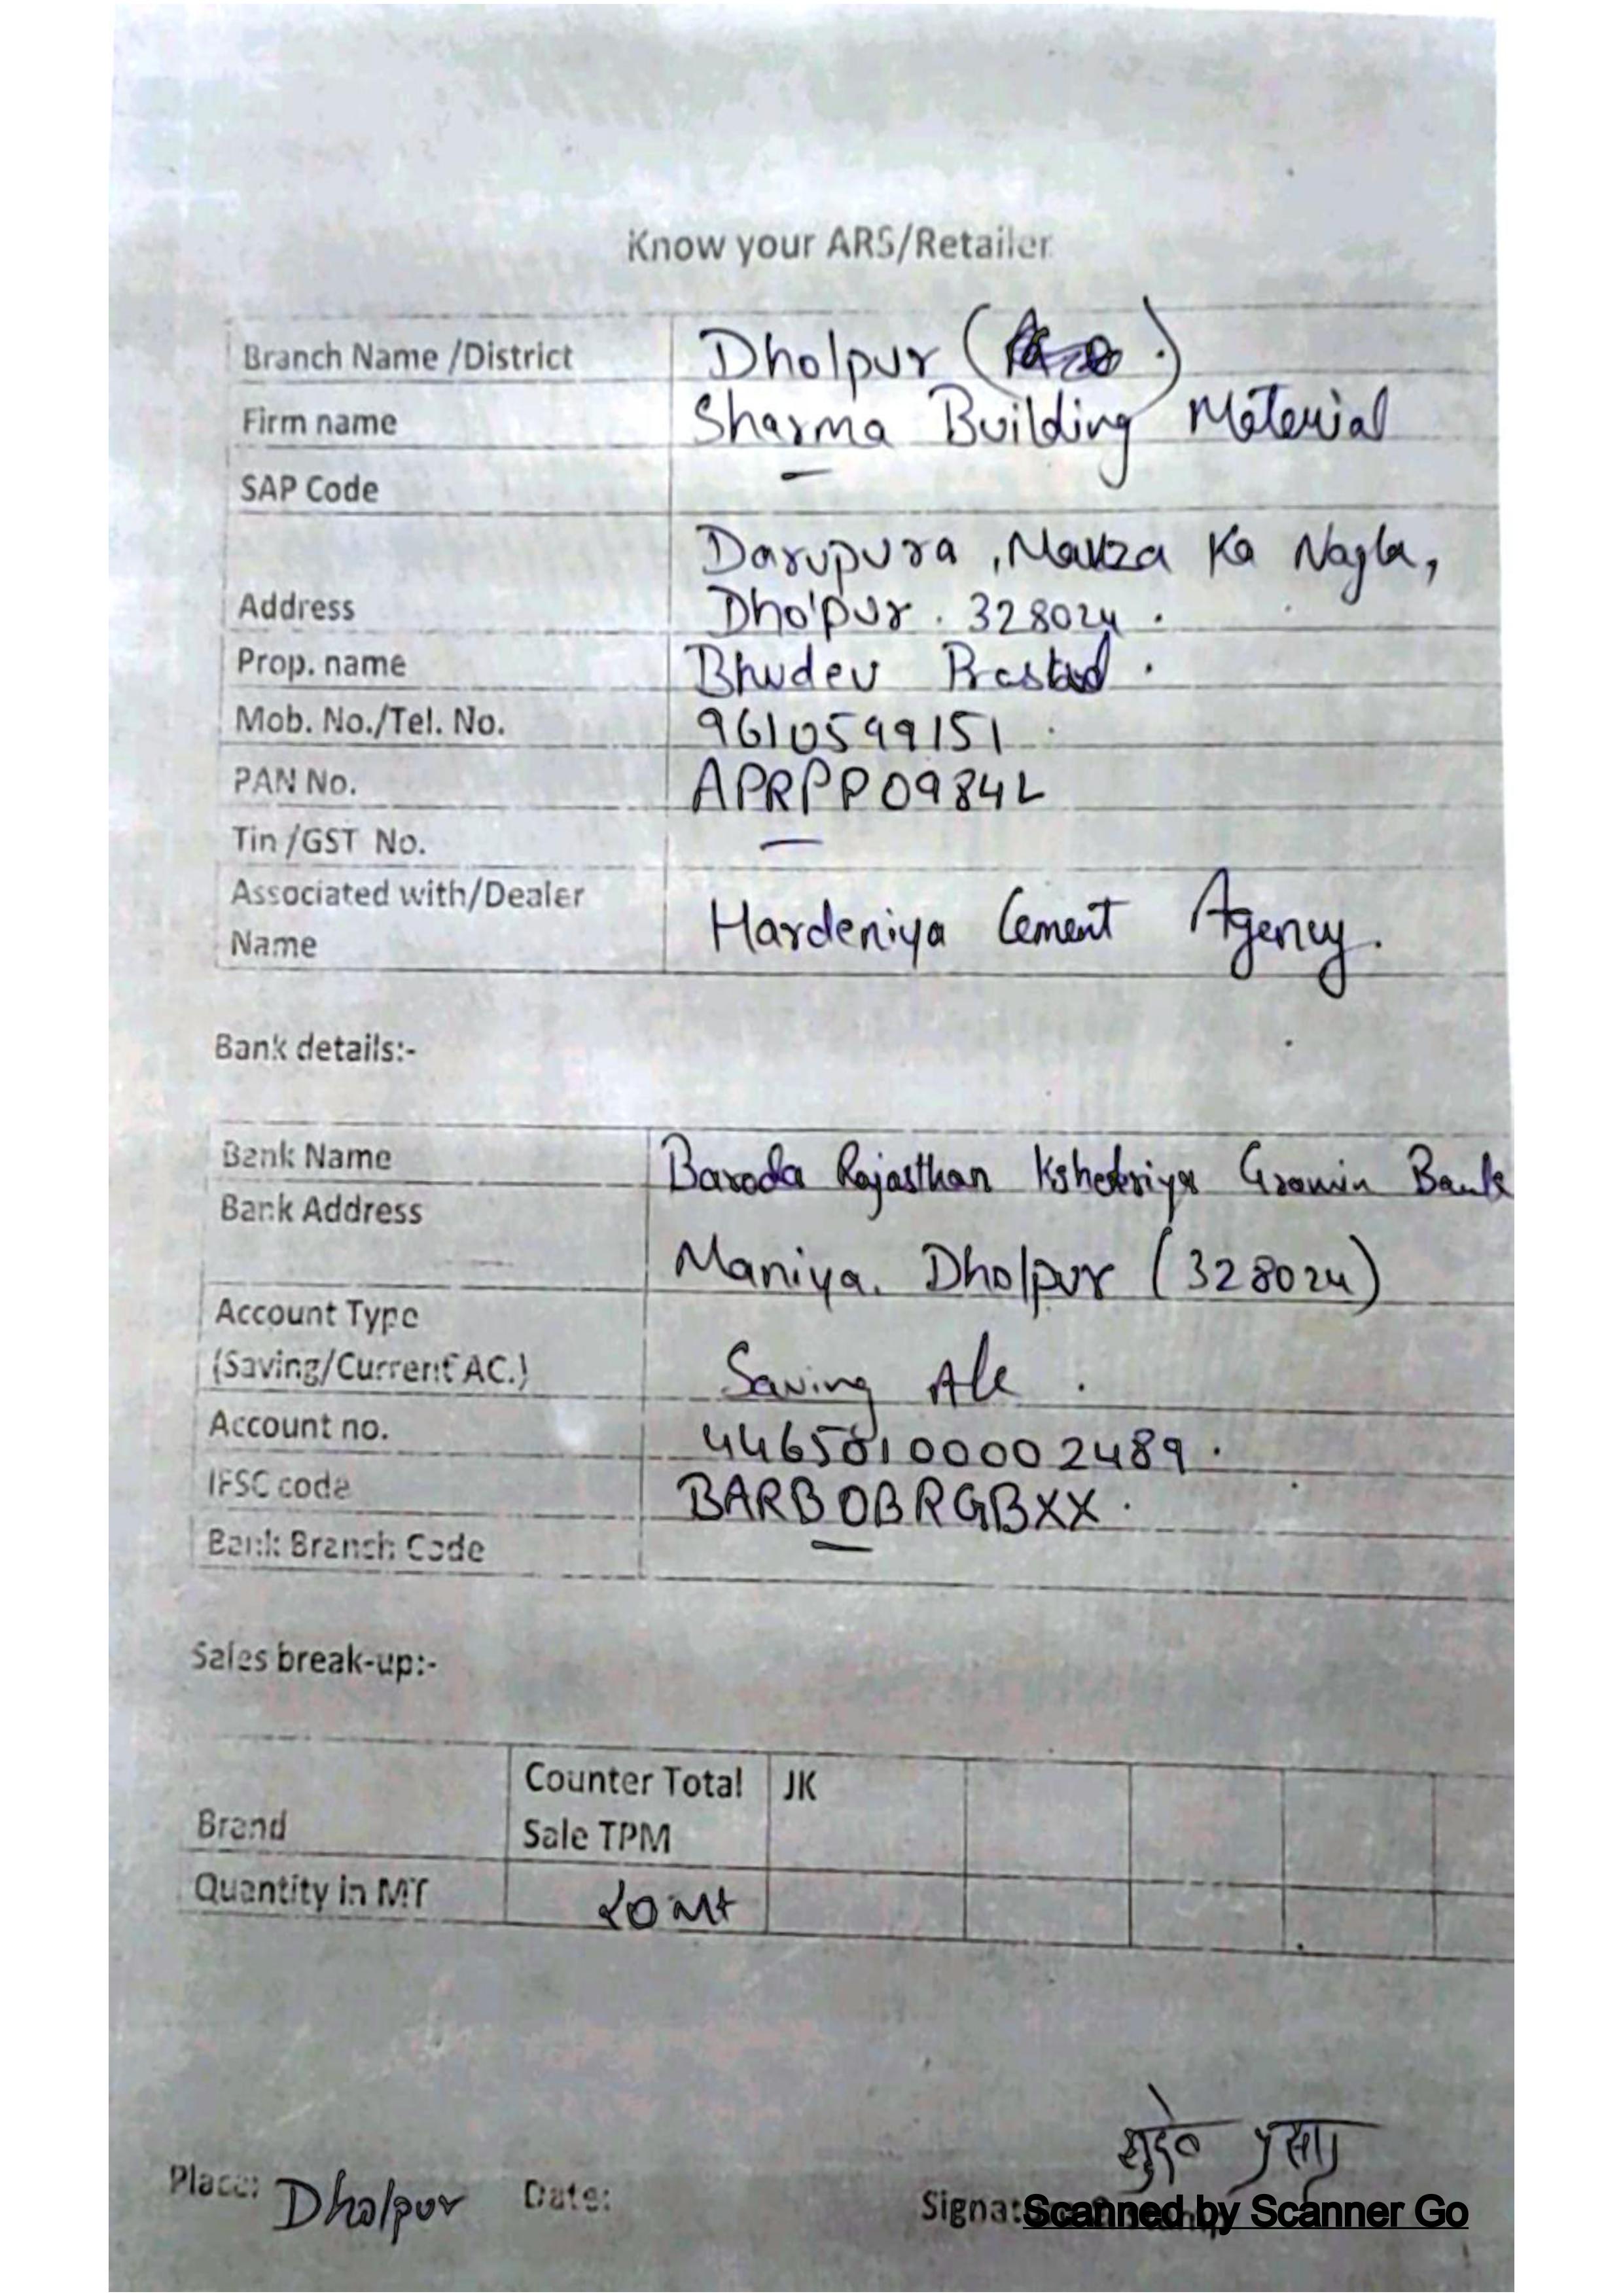 Know your ARS/Retailer
Branch Name /District Dholpur
Firm name Sharma Building Material
SAP Code
Darupura, Mauza Ka Nagla,
Address Dholpur. 328024.
Prop. name Bhudev Prasad.
Mob. No./Tel. No. 9610599151
PAN No. APRPP0984L
Tin /GST No.
Associated with/Dealer
Name Hardeniya Cement Agency.
Bank details:-
Bank Name Baroda Rajasthan Kshetriya Gramin Bank
Bank Address
Maniya. Dholpur (328024)
Account Type
(Saving/Current AC.) Saving A/c.
Account no. 44650100002489.
IFSC code BARB0BRGBXX.
Bank Branch Code
Sales break-up:-
Counter Total JK
Brand Sale TPM
Quantity in MT 20 Mt
Place: Dholpur Date:
Scanned by Scanner Go